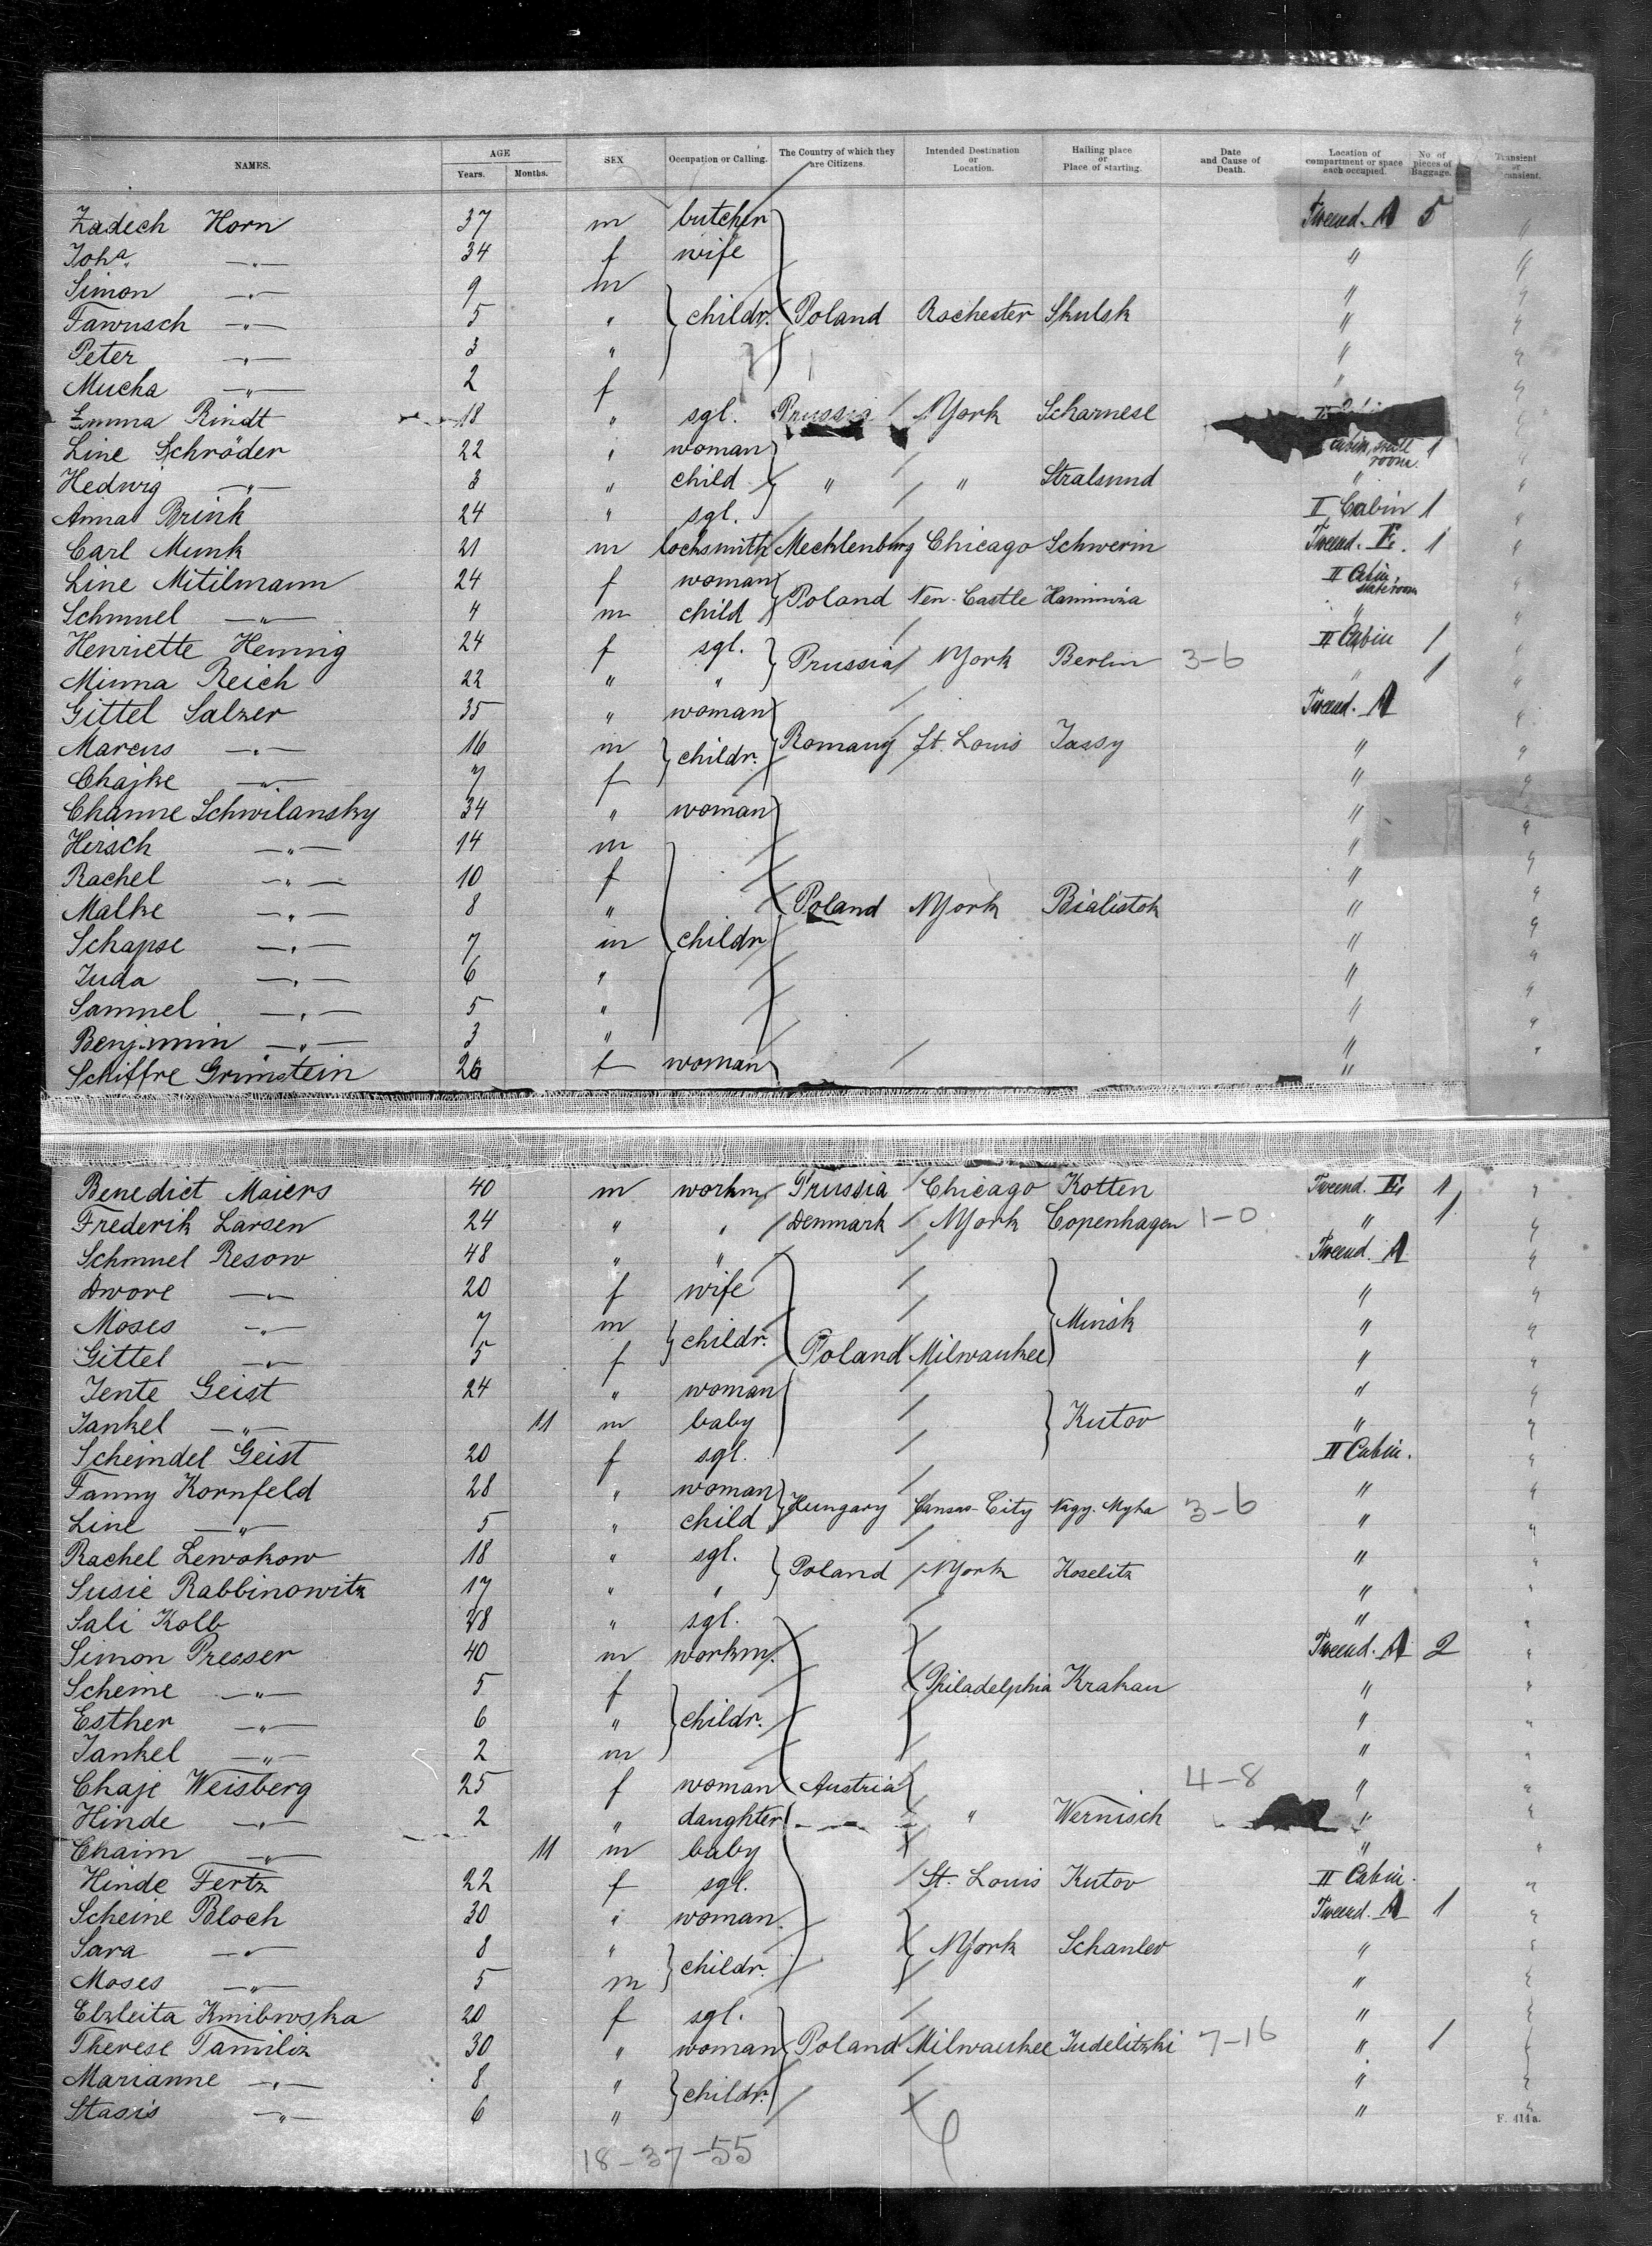 NAMES. AGE Years. Months. SEX Occupation or Calling. The Country of which they are Citizens. Intended Destination or Location. Hailing place or Place of starting. Date and Cause of Death. Location of compartment or space each occupied. No. of pieces of Baggage. Transient or
Zadech Horn 37 m butcher Tweend. A 5
Joha " 34 f wife "
Simon " 9 m "
Fawusch " 5 " childr. Poland Rochester Skulsk "
Peter " 3 " "
Mucha " 2 f "
Emma Rindt 18 " sgl. Prussia NYork Scharnese
Line Schröder 22 " woman room 1
Hedwig " 3 " child " " Stralsund "
Anna Brink 24 " sgl. II Cabin 1
Carl Munk 21 m locksmith Mecklenburg Chicago Schwerin Tweend. E. 1
Line Mitilmann 24 f woman II Cabin, stateroom
Schmuel " 4 m child Poland New-Castle "
Henriette Hennig 24 f sgl. II Cabin 1
Minna Reich 22 " " Prussia NYork Berlin 3-6 " 1
Gittel Salzer 35 " woman Tweend. A
Marcus " 16 m childr. Romany St. Louis Jassy "
Chajke " 7 f "
Channe Schwilansky 34 " woman "
Hirsch " 14 m "
Rachel " 10 f "
Malke " 8 " Poland NYork Bialistok "
Schapse " 7 m childr "
Juda " 6 " "
Samuel " 5 " "
Benjamin " 3 " "
Schiffre Grünstein 26 f woman "
Benedict Maiers 40 m workm. Prussia Chicago Kotten Tweend. E. 1
Frederik Larsen 24 " " Denmark NYork Copenhagen 1-0 " 1
Schmuel Resow 48 " " Tweend. A
Dwore " 20 f wife "
Moses " 7 m childr. Minsk "
Gittel " 5 f Poland Milwaukee "
Jente Geist 24 " woman "
Jankel " 11 m baby Kutov "
Scheindel Geist 20 f sgl. II Cabin.
Fanny Kornfeld 28 " woman "
Line " 5 " child Hungary Cansas-City Nagy-Myha 3-6 "
Rachel Lewokow 18 " sgl. "
Susie Rabbinowitz 17 " " Poland NYork Koselitz "
Sali Kolb 28 " sgl. "
Simon Presser 40 m workm. Tweend. A 2
Scheine " 5 f Philadelphia Krakau "
Esther " 6 " childr. "
Jankel " 2 m "
Chaje Weisberg 25 f woman Austria 4-8 "
Hinde " 2 " daughter " Wernisch "
Chaim " 11 m baby "
Hinde Fertz 22 f sgl. St. Louis Kutov II Cabin.
Scheine Bloch 30 " woman Tweend. A 1
Sara " 8 " NYork Schanlev "
Moses " 5 m childr. "
Elzleita Kmibwska 20 f sgl. "
Therese Tamiliz 30 " woman Poland Milwaukee Judelitzki 7-16 " 1
Marianne " 8 " childr. "
Stasis " 6 " "
F. 411a.
18-37-55